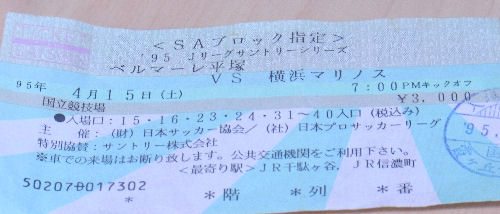 <SAブロック指定>
'95 Jリーグサントリーシリーズ
ベルマーレ平塚
VS 横浜マリノス
95年 4月15日(土) 7:00PMキックオフ
国立競技場 ¥3,000
●入場口:15・16・23・24・31~40入口(税込み)
主 催:(財)日本サッカー協会/(社)日本プロサッカーリーグ
特別協賛:サントリー株式会社
※車での来場はお断り致します。公共交通機関をご利用下さい。
<最寄り駅>JR千駄ヶ谷、JR信濃町
50207B017302
* *階 *列 *番
'95.